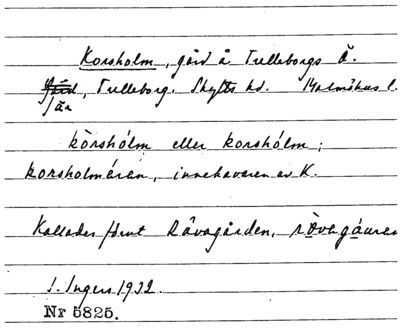 Korsholm, gård å Trelleborgs Ä.
fjärd, Trelleborg. Skytts hd. Malmöhus l.
jär
kòrshólm eller korshólm;
korsholmáren, innehavaren av K.
Kallades förut Råvagården, rövegáuren
I. Ingers 1932.
Nr 5825.